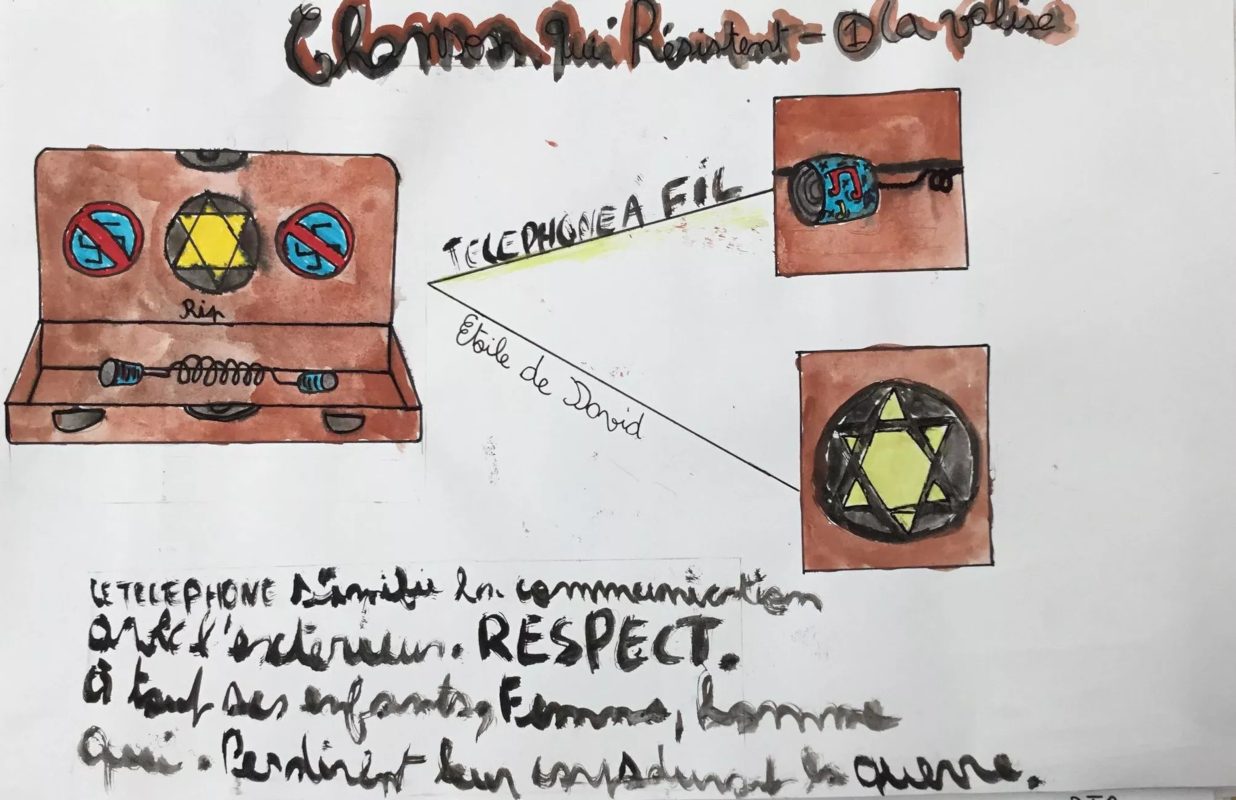 Chanson qui Résistent - ① la valise
TELEPHONE A FIL
Rip
Etoile de David
LE TELEPHONE la communication
avec l'exterieur. RESPECT.
à tout ses enfants, Femme, homme
qui. Perdirent leur durant la guerre.